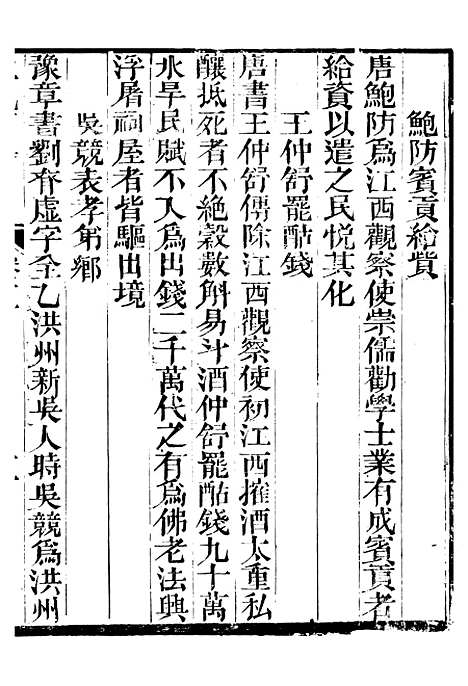 鮑防賓貢給貲
唐鮑防爲江西觀察使崇儒勸學士業有成賓貢者
給資以遣之民悅其化
王仲舒罷酤錢
唐書王仲舒傳除江西觀察使初江西搉酒太重私
釀抵死者不絕穀數斛易斗酒仲舒罷酤錢九十萬
水旱民賦不入爲出錢二千萬代之有爲佛老法興
浮屠祠屋者皆驅出境
吳競表孝弟鄉
豫章書劉眘虛字全乙洪州新吳人時吳競爲洪州